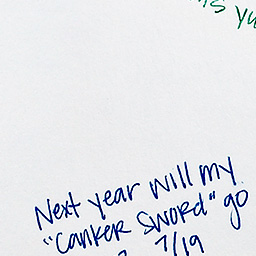 Next year will my
"Canker Sword" go
7/19